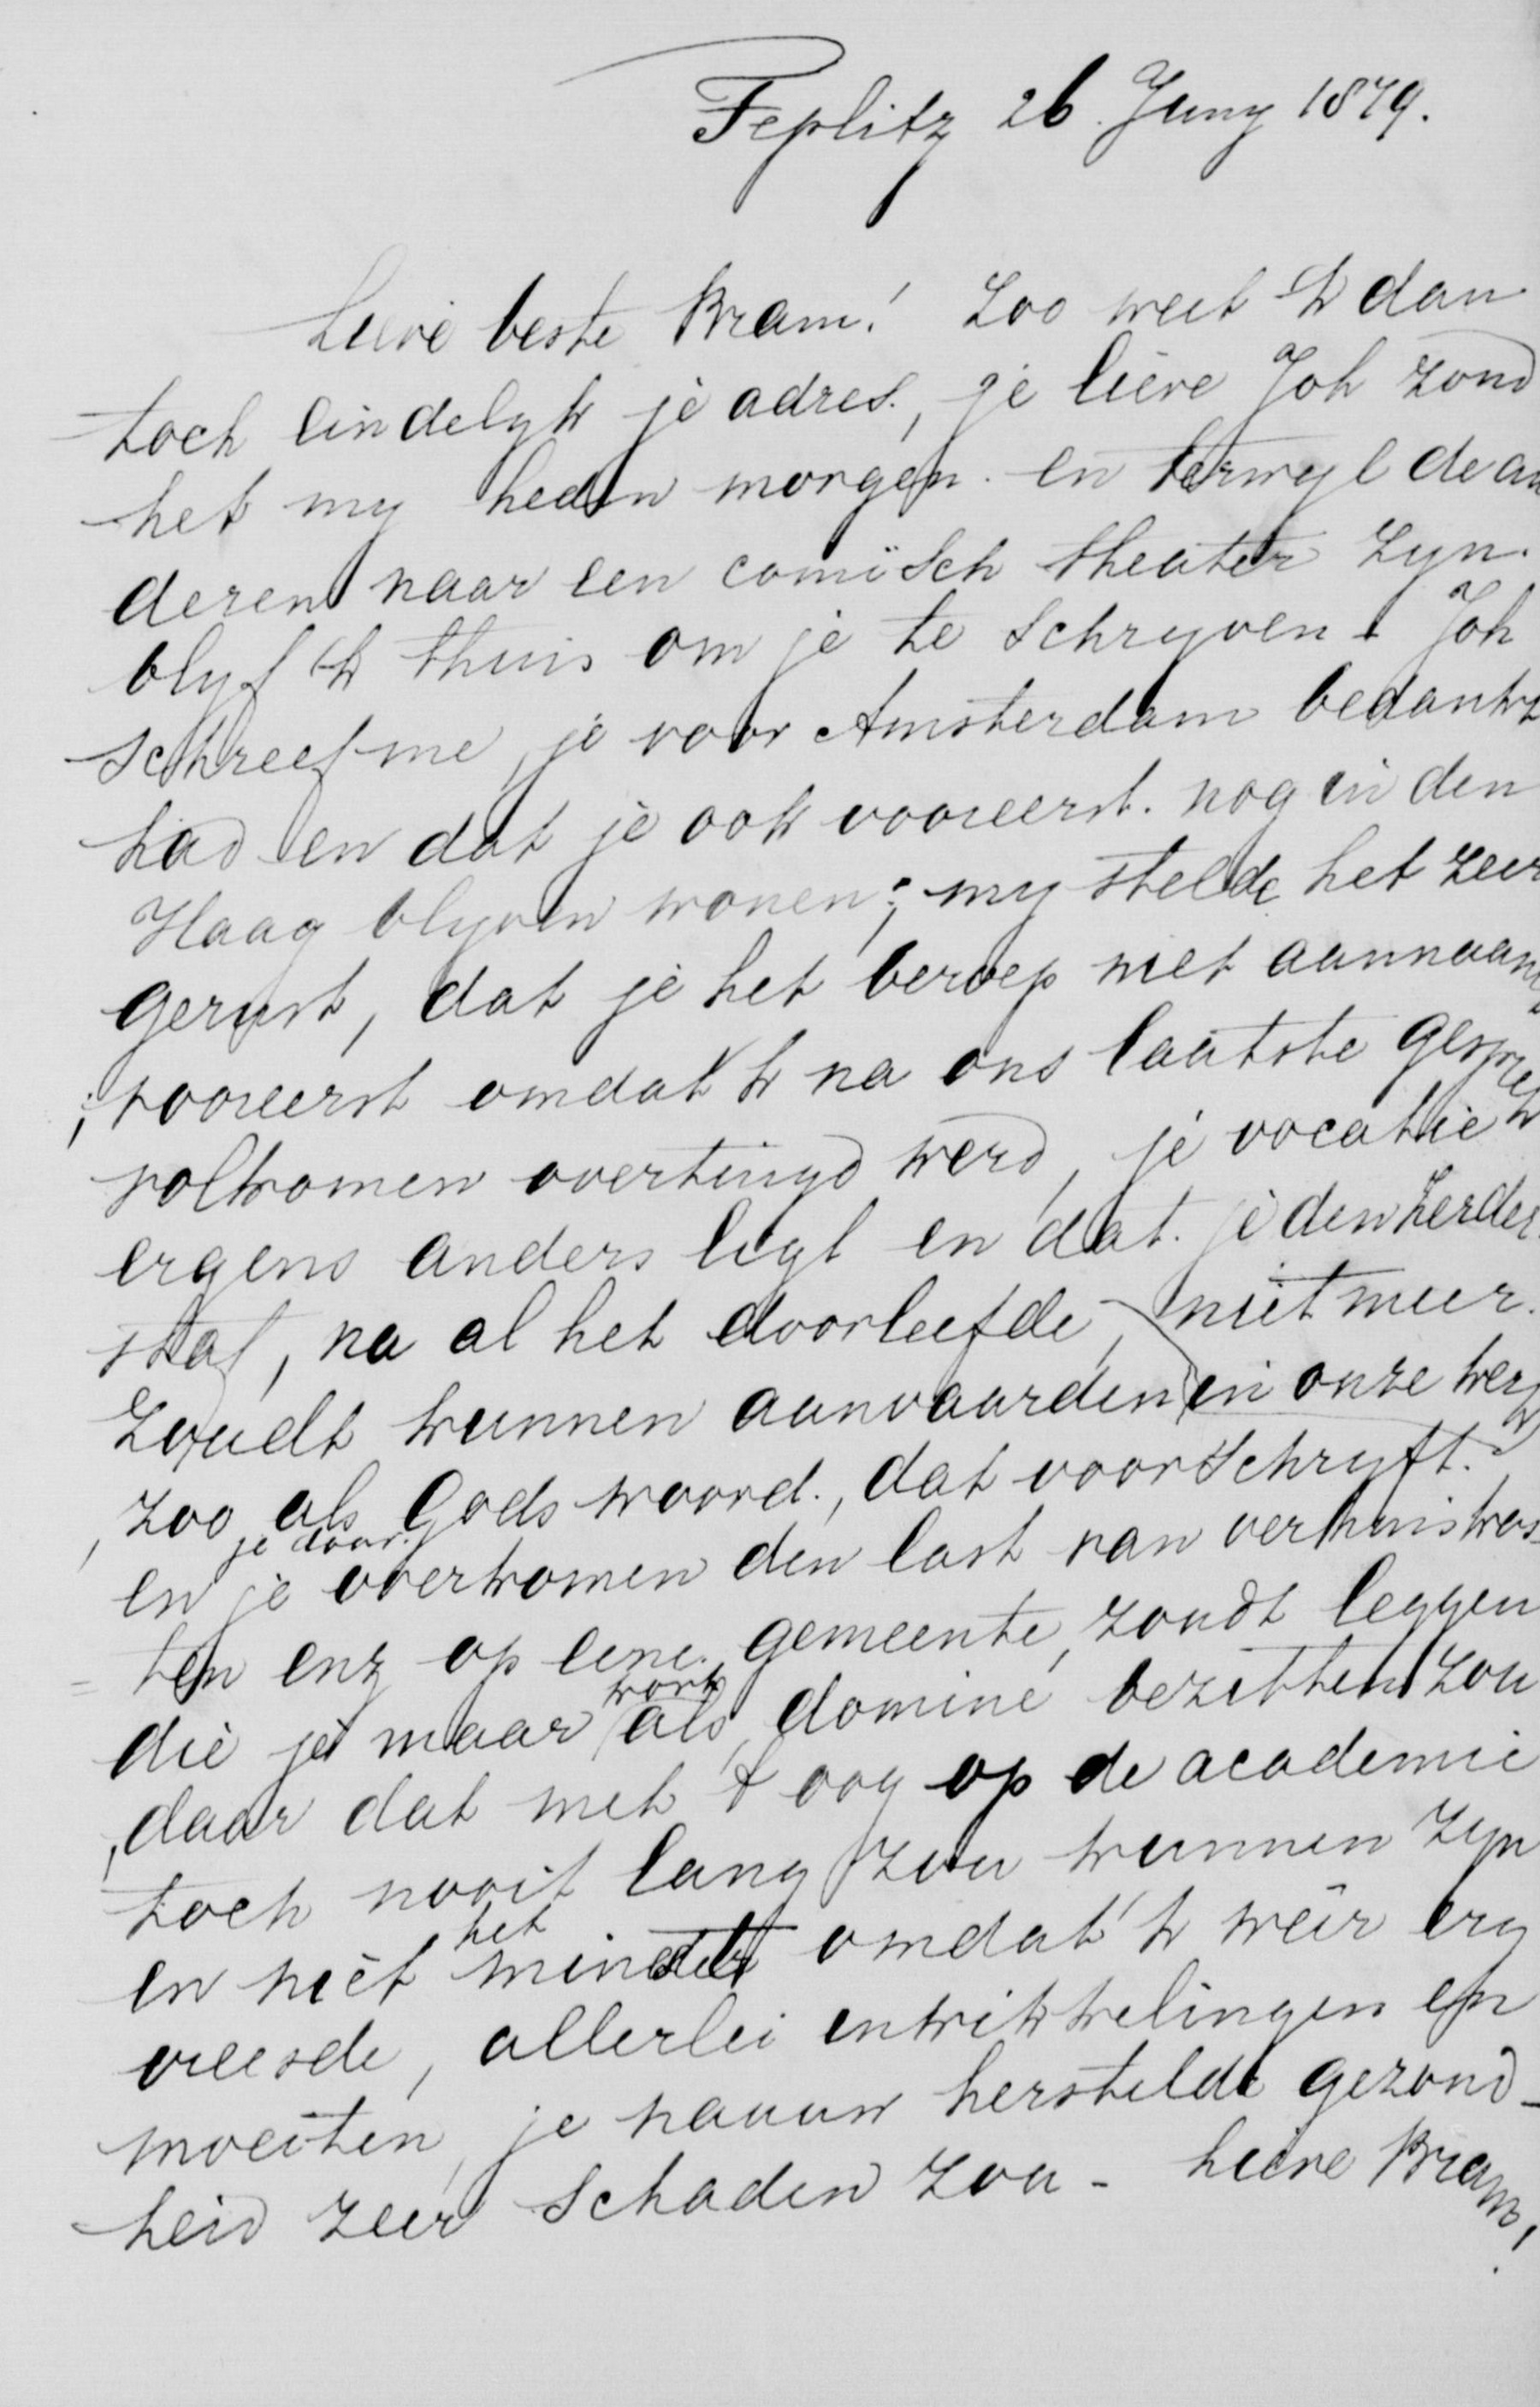 Teplitz 26. Juny 1879.
Lieve beste Bram! Zoo weet 'k dan
toch eindelyk je adres., je lieve Joh zond
het my heden morgen. en terwyl de an
deren naar een comïsch theater zyn.
blyf 'k thuis om je te schryven. Joh
schreef me, je voor Amsterdam bedankt
had en dat je ook vooreerst. nog in den
Haag blyven wonen; my stelde het zeer
gerust, dat je het beroep niet aannaam
; vooreerst omdat 'k na ons laatste gesprek
volkomen overtuigd werd, je vocatie
ergens anders ligt en dat. je den herder
staf, na al het doorleefde, niet meer.
zoudt kunnen aanvaarden in onze kerk
, zoo als Gods woord., dat voorschryft.
je door.
en je overkomen den last van verhuiskos
= ten enz op eene. gemeente, zoudt leggen
kort
die je maar als dominé bezitten zou
, daar dat met 't oog op de academie
toch nooit lang zou kunnen zyn
het
en niet minst omdat 'k wéér erg
vreesde, allerlei entwikkelingen en
moeiten, je nauuw herstelde gezond-
heid zeer schaden zou - Lieve Bram!